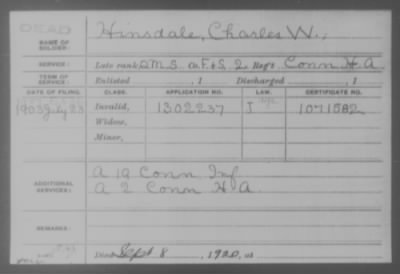 DEAD
NAME OF SOLDIER: Hinsdale, Charles W.,
SERVICE: Late rank Q.M.S. a. F. & S, 2, Reg't Conn H A
TERM OF SERVICE: Enlisted , 1 Discharged , 1
DATE OF FILING. CLASS. APPLICATION NO. LAW. CERTIFICATE NO.
1903 July 23 Invalid, 1302237 J 1071582
Widow,
Minor,
ADDITIONAL SERVICES: A 19 Conn Inf
A 2 Conn H A.
REMARKS:
Died Sept 8, 1920, at